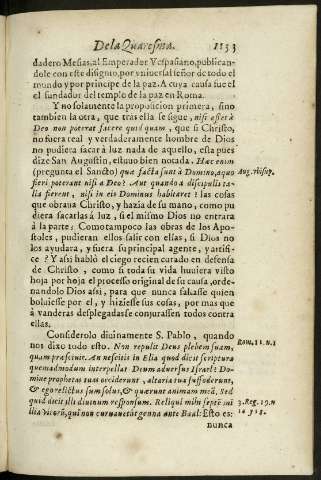 De la Quaresma. 1133
dadero Mesias, al Emperador Vespasiano, publican-
dole con este disignio, por vniuersal señor de todo el
mundo y por principe de la paz. A cuya causa fue el
el fundador del templo de la paz en Roma.
Y no solamente la proposicion primera, sino
tambien la otra, que tras ella se sigue, nisi esset à
Deo non poterat facere quidquam, que si Christo,
no fuera real y verdaderamente hombre de Dios
no pudiera sacar à luz nada de aquello, esta pues
dize San Augustin, estuuo bien notada. Hæc enim
(pregunta el Sancto) quæ facta sunt à Domino, a quo Aug.
fieri poterant nisi à Deo? Aut quando à discipulis ta-
lia fierent, nisi in eis Dominus habitaret? las cosas
que obraua Christo, y hazia de su mano, como pu
diera sacarlas à luz, si el mismo Dios no entrara
à la parte: Como tampoco las obras de los Apo-
stoles, pudieran ellos salir con ellas, si Dios no
los ayudara, y fuera su principal agente, y artifi-
ce? Y assi habló el ciego recien curado en defensa
de Christo, como si toda su vida huuiera visto
hoja por hoja el processo original de su causa, orde-
nandolo Dios assi, para que nunca faltasse quien
boluiesse por el, y hiziesse sus cosas, por mas que
à vanderas desplegadas se conjurassen todos contra
ellas.
Considerolo diuinamente S. Pablo, quando
nos dixo todo esto. Non repulit Deus plebem suam, Rom. 11. N. 2
quam præsciuit. An nescitis in Elia quid dicit scriptura
quemadmodum interpellat Deum aduersus Israel: Do-
mine prophetas tuos occiderunt, altaria tua suffoderunt,
& ego relictus sum solus, & quærunt animam meã. Sed
quid dicit illi diuinum responsum. Reliqui mihi septẽ mi 3. Reg. 19. n
lia virorũ, qui non curuauerũt genua ante Baal: Esto es: 14 y 18.
nunca